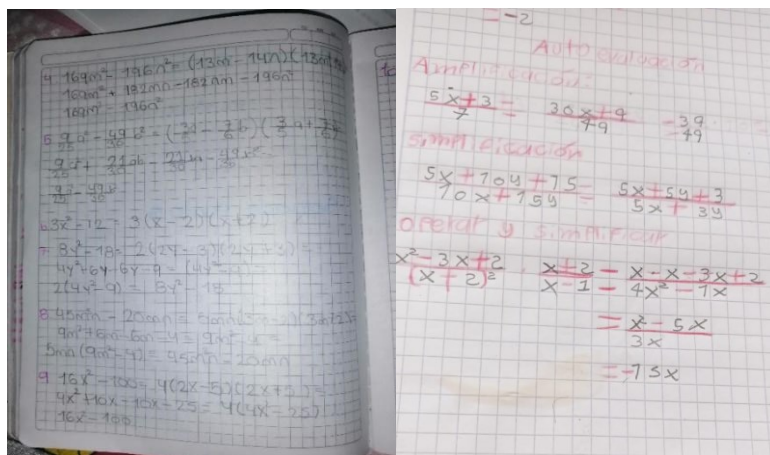 4 169m² - 196n² = (13m - 14n)(13m
169m² + 182mn - 182nm - 196n²
169m² - 196n²
5 9/25 a² - 49/36 b² =
6 3x² - 12 = 3(x - 2)(x + 2)
7 8y² - 18 = 2(2y - 3)(2y + 3) =
4y² + 6y - 6y - 9
2(4y² - 9) = 8y² - 18
8 45m³n - 20mn =
9m² + 6m - 6m - 4 = 9m² - 4 =
5mn(9m² - 4) = 45m³n - 20mn
9 16x² - 100 = 4(2x - 5)(2x + 5) =
4x² + 10x - 10x - 25 = 4(4x² - 25)
16x² - 100
= -2
Autoevaluación
Amplificación:
5x + 3 / 7 = 30x + 9 / 49 = 39 / 49 =
simplificación
5x + 10y + 15 / 10x + 15y = 5x + 5y + 3 / 5x + 3y
operar y simplificar
x² - 3x + 2 / (x + 2)² · x + 2 / x - 1 = x - x - 3x + 2 / 4x² - 1x
= x² - 5x / 3x
= -15x